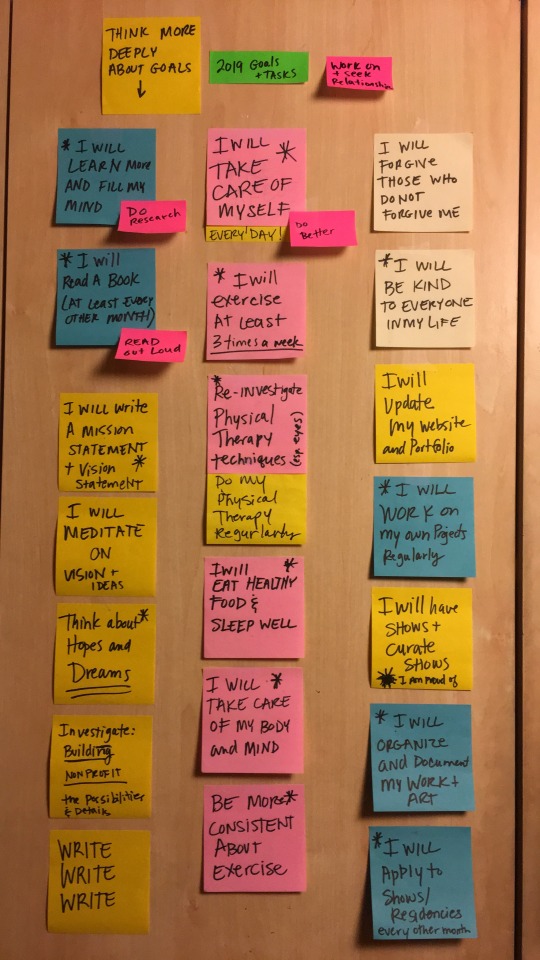 THINK MORE
DEEPLY
ABOUT GOALS
↓
2019 GOALS
+ TASKS
WORK ON
+ SEEK
Relationships
* I WILL
LEARN MORE
AND FILL MY
MIND
DO
RESEARCH
* I will
Read A Book
(AT LEAST EVERY
OTHER MONTH!)
READ
OUT LOUD
I WILL WRITE
A MISSION
STATEMENT
+ VISION *
Statement
I WILL
MEDITATE
ON
VISION +
IDEAS
Think about *
Hopes and
Dreams
Investigate:
Building
NONPROFIT
the Possibilities
& Details
WRITE
WRITE
WRITE
I WILL *
TAKE
CARE OF
MYSELF
EVERY DAY!
DO
Better
* I will
exercise
AT Least
3 times a week
* Re-investigate
Physical
Therapy
techniques (esp. eyes)
Do my
Physical
Therapy
Regularly
I WILL *
EAT HEALTHY
FOOD &
SLEEP WELL
I WILL *
TAKE CARE
OF MY BODY
and MIND
BE MORE *
CONSISTENT
ABOUT
Exercise
I WILL
FORGIVE
THOSE WHO
DO NOT
FORGIVE ME
* I WILL
BE KIND
TO EVERYONE
IN MY LIFE
I will
Update
my website
and Portfolio
* I WILL
WORK ON
my own Projects
Regularly
I will have
SHOWS +
Curate
SHOWS
* I am Proud of
* I WILL
ORGANIZE
and Document
my WORK +
ART
* I WILL
Apply to
Shows/
Residencies
every other month